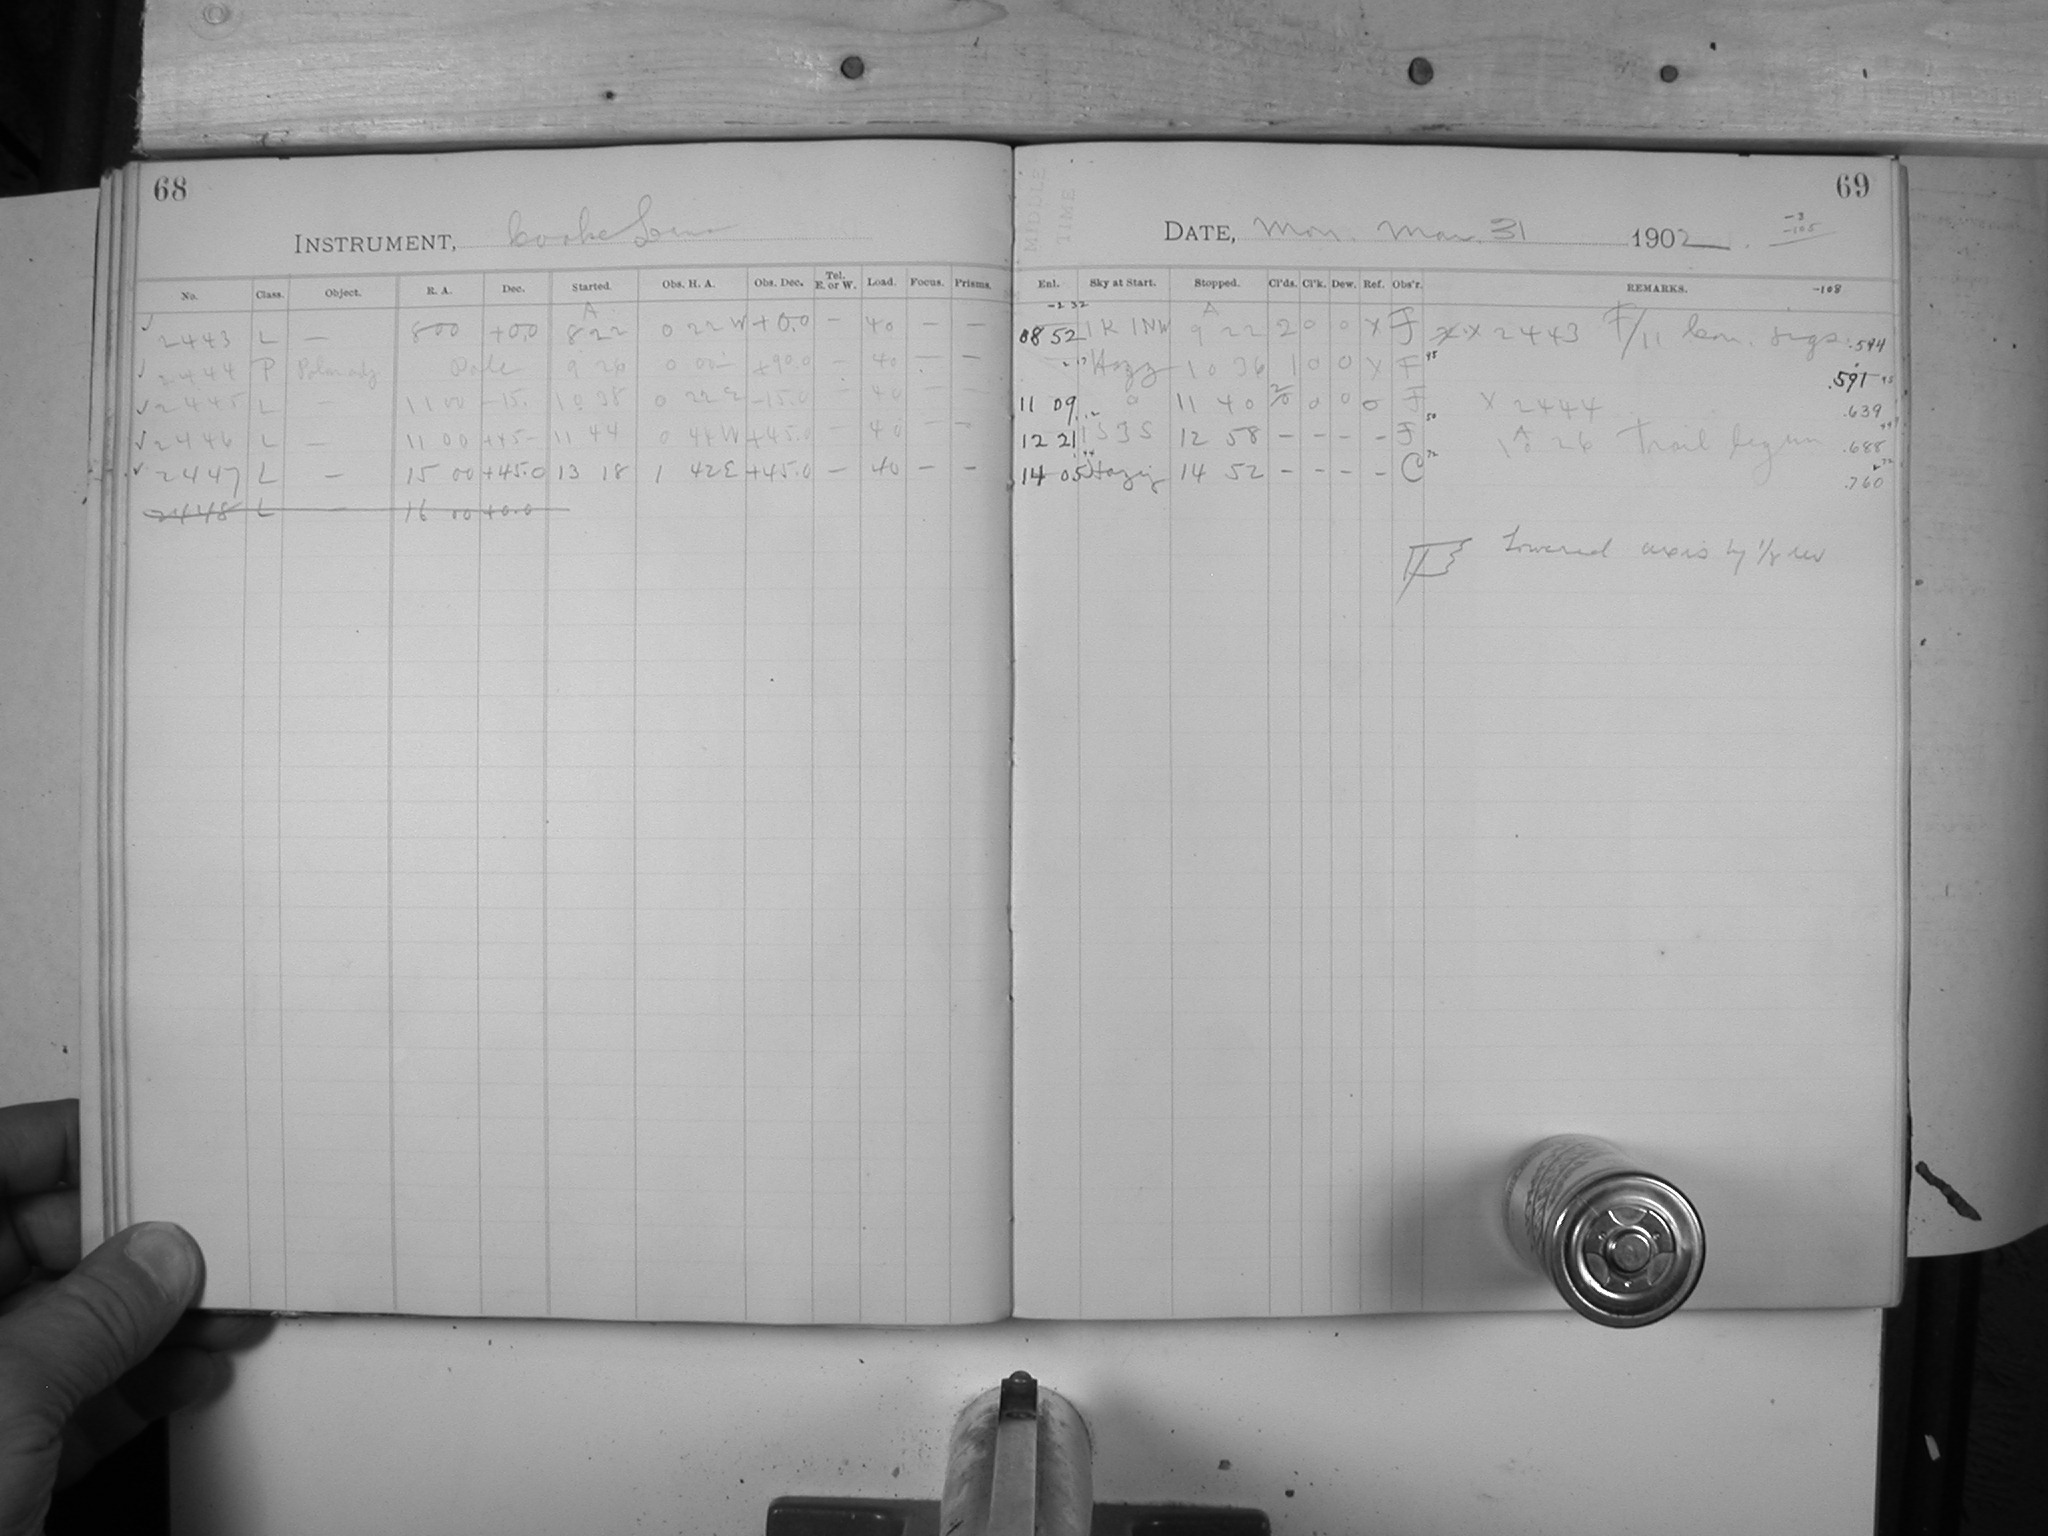 68
INSTRUMENT, Cooke Lens
No. Class. Object. R. A. Dec. Started. Obs. H. A. Obs. Dec. Tel. E. or W. Load. Focus. Prisms.
A
✓ 2443 L — 8 00 +0.0 8 22 0 22 W +0.0 — 40 — —
✓ 2444 P Polar adj Pole 9 26 0 00 +90.0 — 40 — —
✓ 2445 L — 11 00 -15. 10 38 0 22 E -15.0 — 40 — —
✓ 2446 L — 11 00 +45- 11 44 0 44 W +45.0 — 40 — —
✓ 2447 L — 15 00 +45.0 13 18 1 42 E +45.0 — 40 — —
2448 L — 16 00 +0.0
69
MIDDLE
TIME
DATE, Mon. Mar. 31 1902
-3
-105
Enl. Sky at Start. Stopped. Cl'ds. Cl'k. Dew. Ref. Obs'r. REMARKS. -108
A
08 52 1 K 1 NW 9 22 2 0 0 X F X 2443 F/11 .594
Hazy 10 36 1 0 0 X F .591
11 09 0 11 40 0 0 0 F X 2444 .639
12 21 1 S 3 S 12 58 — — — — F 10 26 Trail begun .688
14 05 Hazy 14 52 — — — — C .760
Lowered axis by 1/8 rev